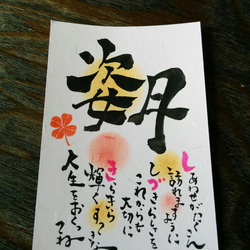 姿月
しあわせがたくさん
訪れますように
しづきらしさを
これからも
大切に
きらきら
輝くすてきな
人生をおくってね